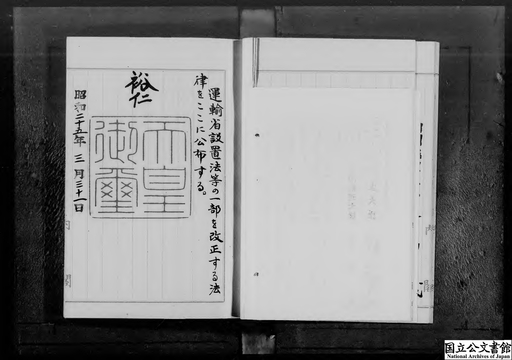 運輸省設置法等の一部を改正する法
律をここに公布する。
裕仁
天皇
御璽
昭和二十五年三月三十一日
国立公文書館
National Archives of Japan